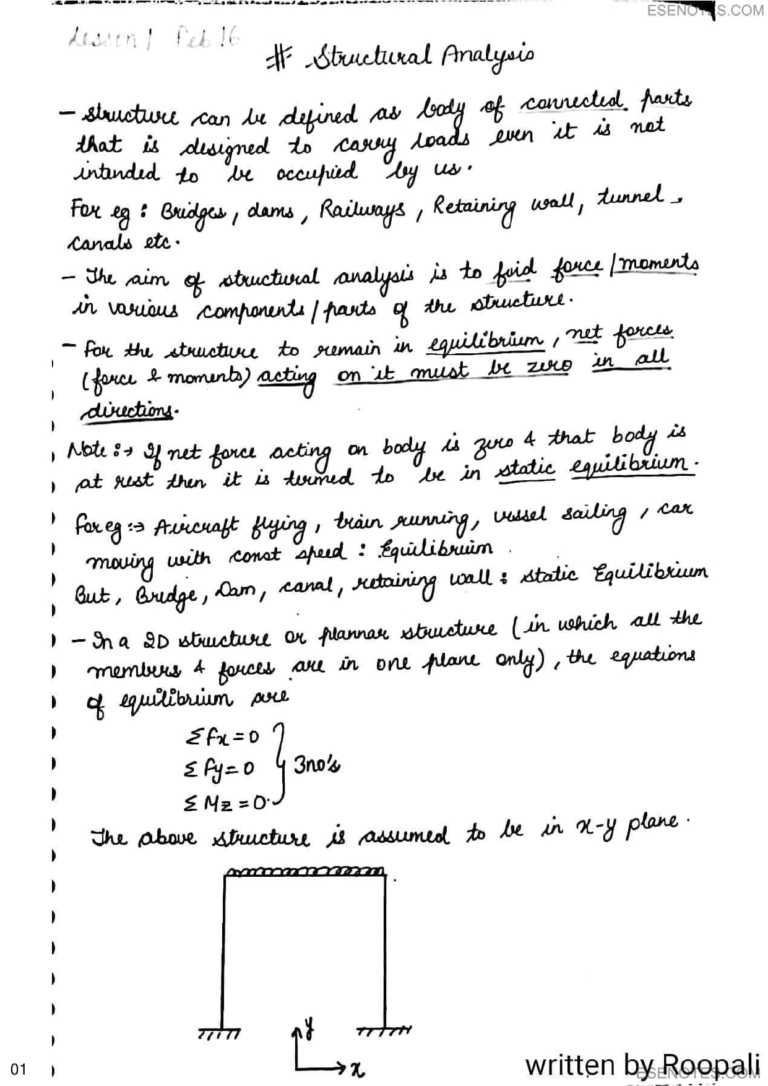 ESENOTES.COM
Lesson 1 Feb 16
# Structural Analysis
- structure can be defined as body of connected parts
that is designed to carry loads even it is not
intended to be occupied by us.
For eg : Bridges, dams, Railways, Retaining wall, tunnel,
canals etc.
- The aim of structural analysis is to find force/moments
in various components/parts of the structure.
- For the structure to remain in equilibrium, net forces
(force & moments) acting on it must be zero in all
directions.
Note :→ If net force acting on body is zero & that body is
at rest then it is termed to be in static equilibrium.
For eg :→ Aircraft flying, train running, vessel sailing, car
moving with const speed : Equilibruim.
But, Bridge, Dam, canal, retaining wall : static Equilibrium
- In a 2D structure or plannar structure (in which all the
members & forces are in one plane only), the equations
of equilibrium are
Σfx = 0
Σfy = 0 } 3no's
ΣMz = 0.
The above structure is assumed to be in x-y plane.
y
x
01
written by Roopali
ESENOTES.COM